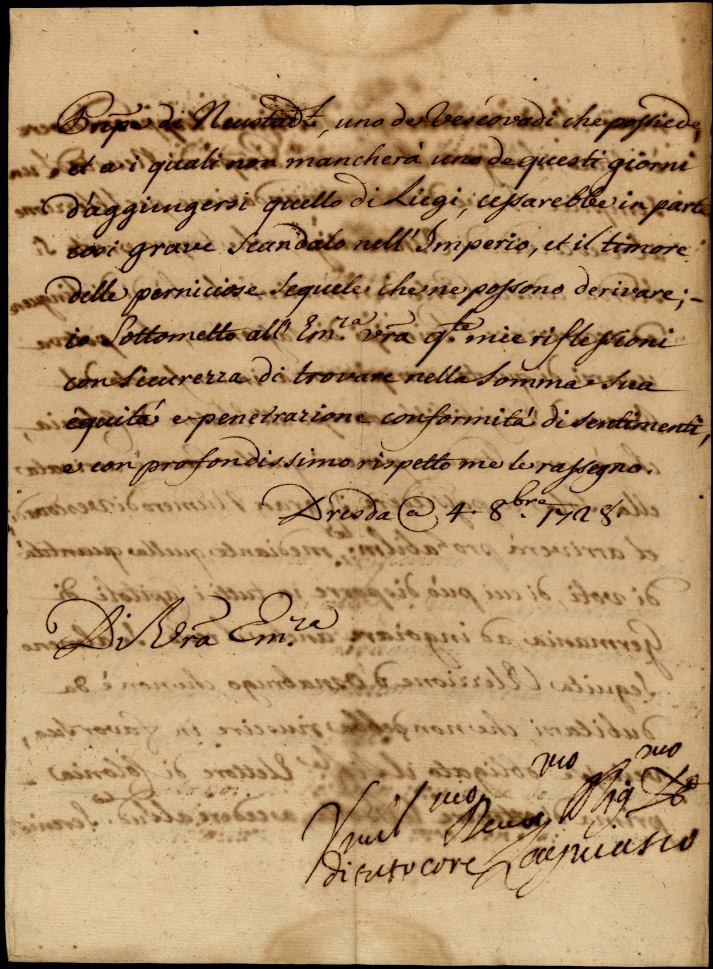 Prnpe di Neustadt, uno de Vescovadi che possiede,
et a i quali non mancherà uno de questi giorni
d'aggiungersi quello di Liegi, cessarebbe in parte
cosi grave scandalo nell' Imperio, et il timore
delle perniciose sequele che ne possono derivare; -
io sottometto all' Em.za vrã q.te mie riflessioni
con sicurezza di trovare nella somma sua
equità e penetrazione conformità di sentimenti,
e con profondissimo rispetto me le rassegno.
Dresda a 4. 8.bre 1728.
Di Vrã Em.za
Umil mo Devo mo Oblig mo
di tuto core